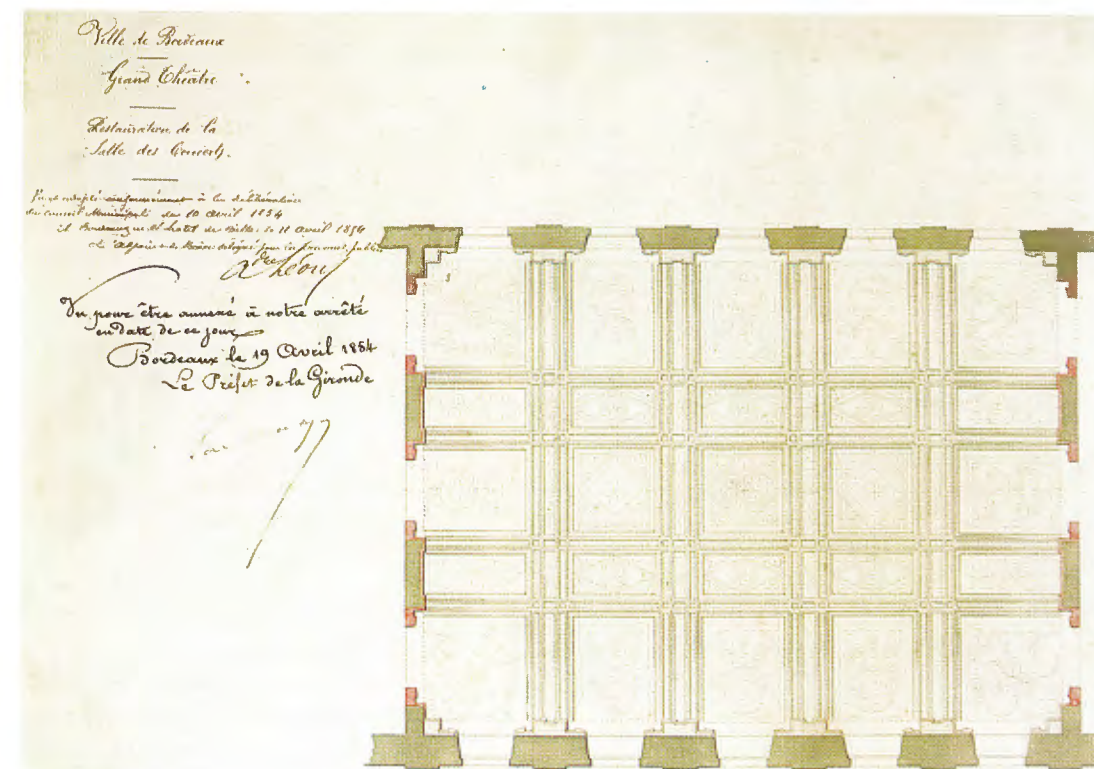 Ville de Bordeaux
Grand Théâtre.
Restauration de la
Salle des Concerts.
Vu et adopté conformément à la délibération
du Conseil Municipal du 10 Avril 1884
à Bordeaux, en l'hotel de Ville, le 11 Avril 1884
L'Adjoint du Maire délégué pour les travaux publics
Vu pour être annexé à notre arrêté
en date de ce jour
Bordeaux le 19 Avril 1884
Le Préfet de la Gironde